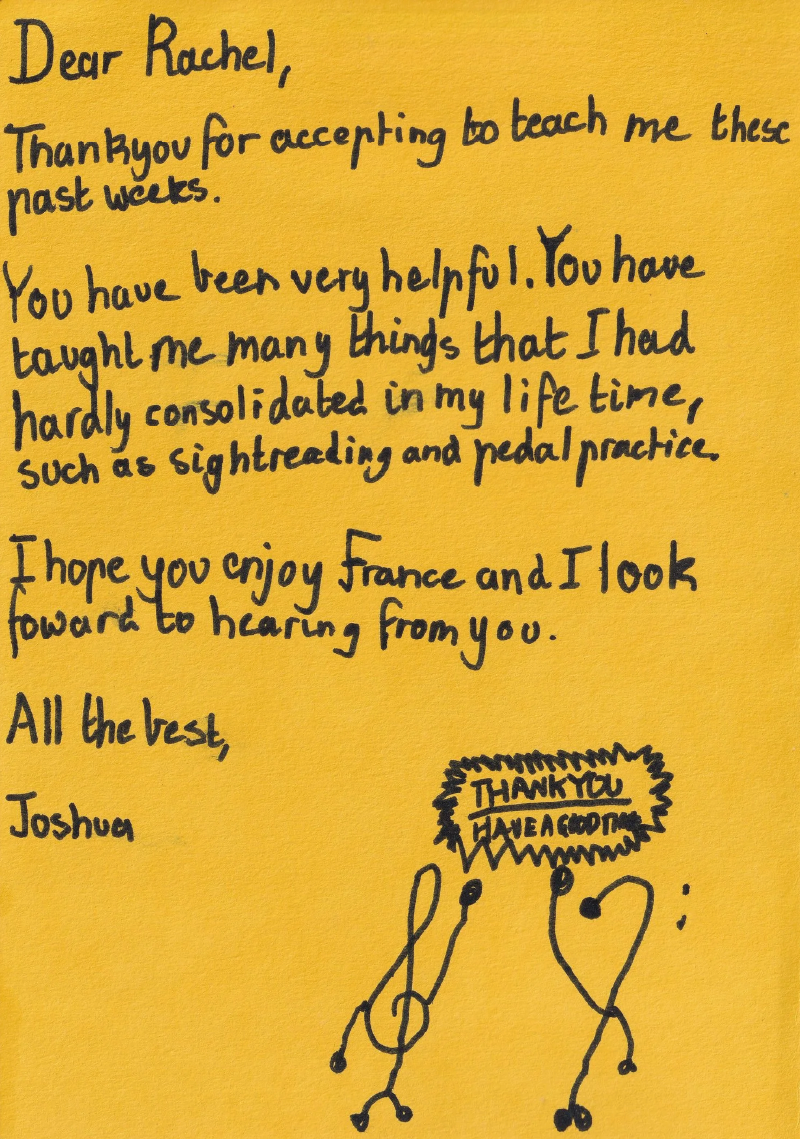 Dear Rachel,
Thankyou for accepting to teach me these
past weeks.
You have been very helpful. You have
taught me many things that I had
hardly consolidated in my life time,
such as sightreading and pedal practice.
I hope you enjoy France and I look
foward to hearing from you.
All the best,
Joshua
THANK YOU
HAVE A GOOD TIME